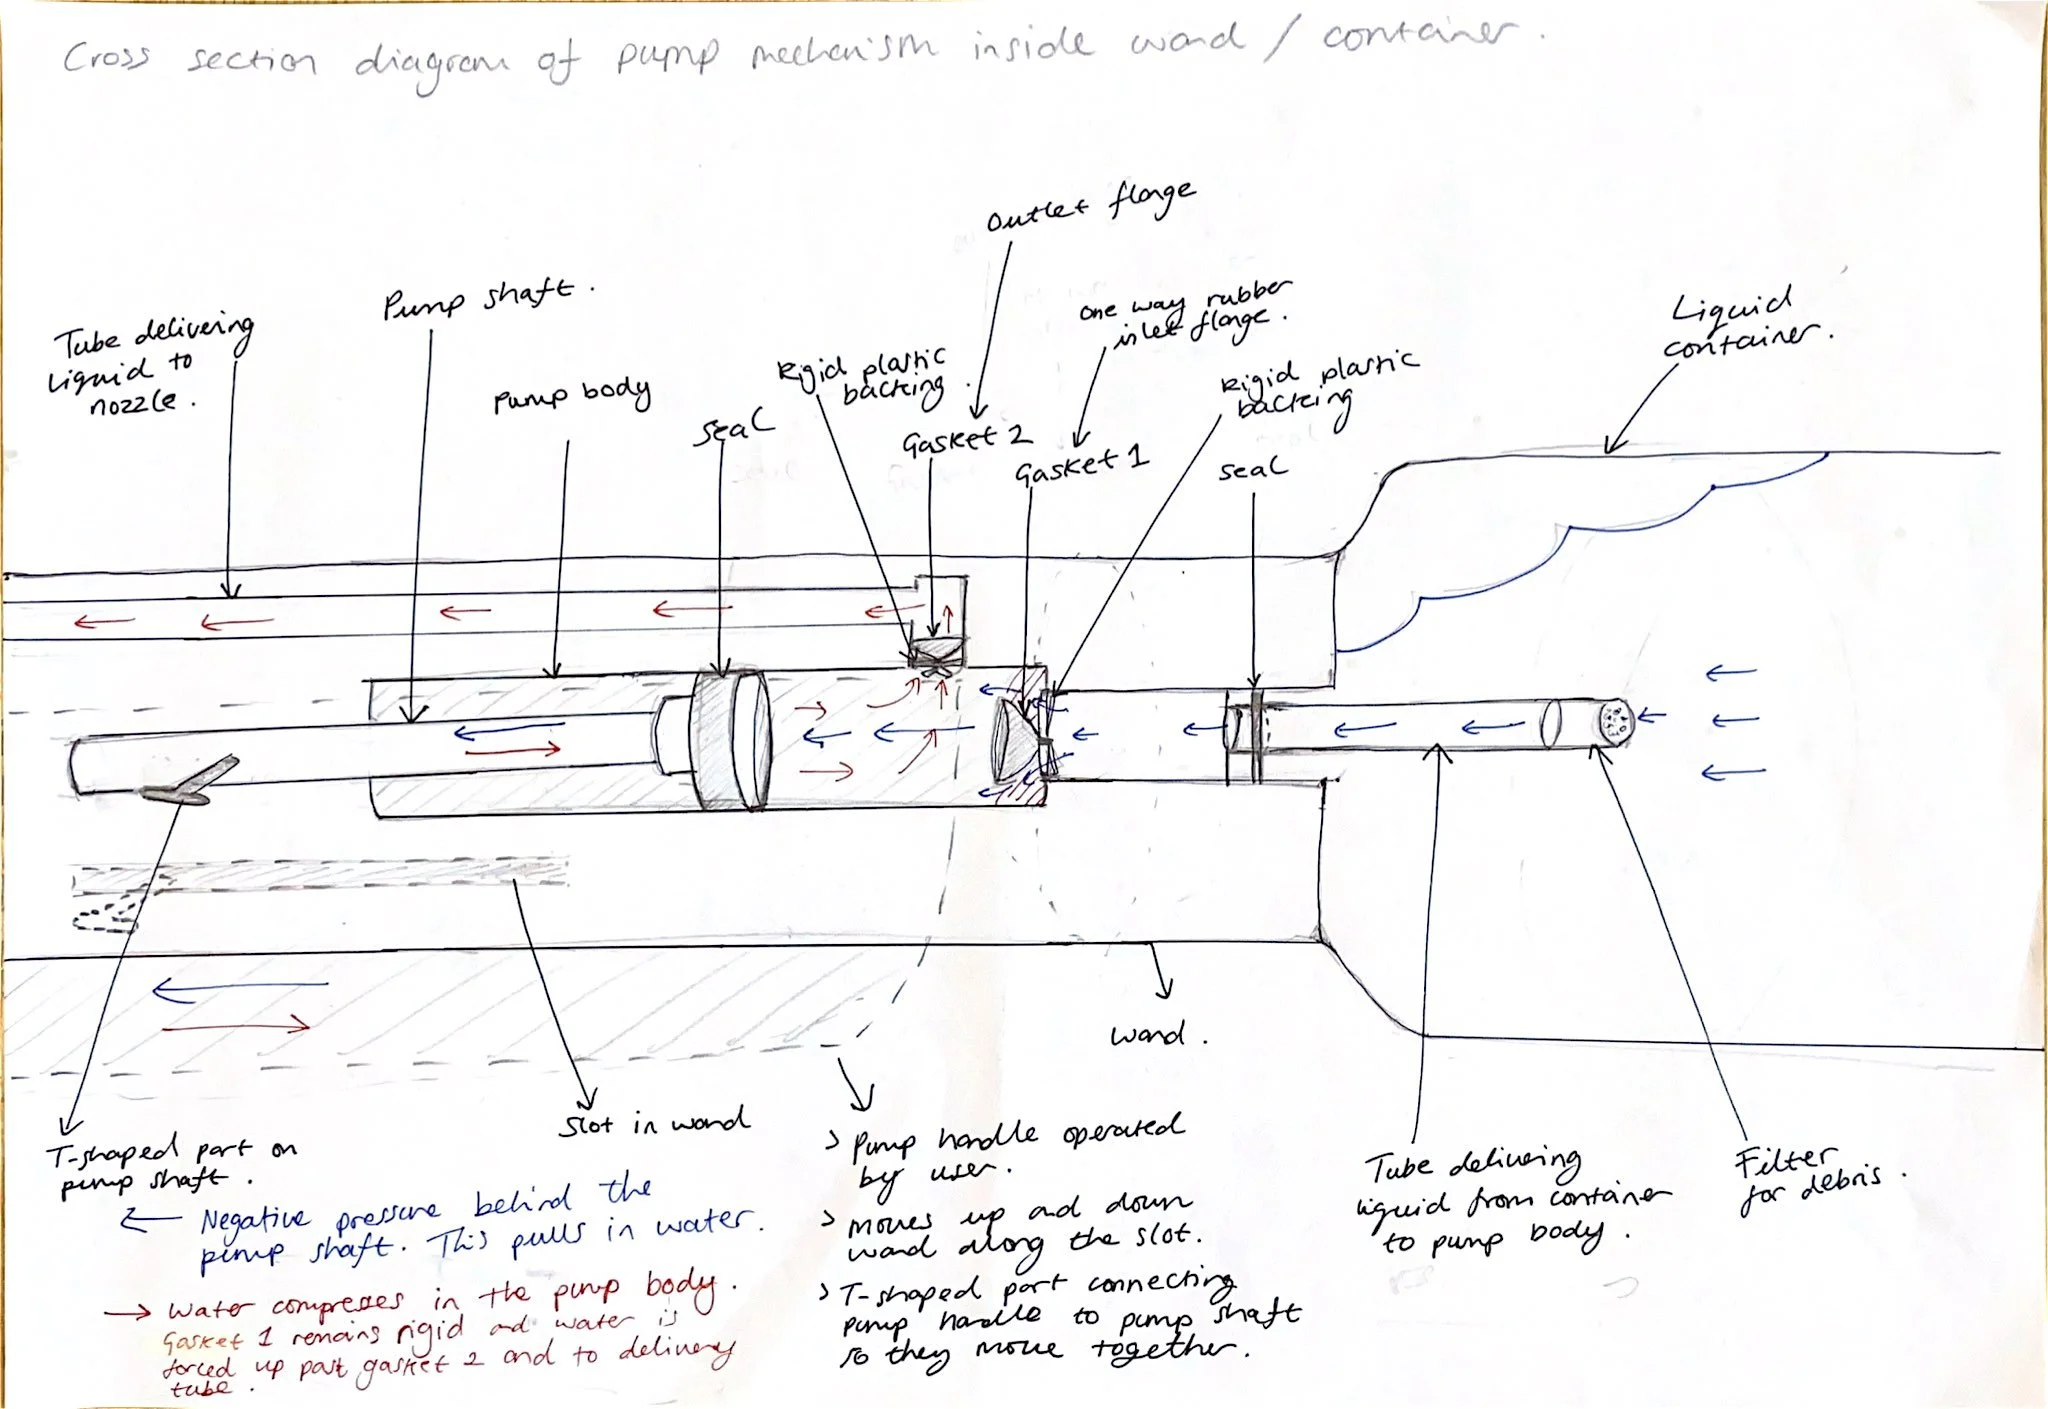 Cross section diagram of pump mechanism inside wand / container.
Outlet flange
Pump shaft.
One way rubber
inlet flange.
Liquid
container.
Tube delivering
liquid to
nozzle.
Rigid plastic
backing.
Rigid plastic
backing
Pump body
seal
Gasket 2
Gasket 1
seal
wand.
T-shaped part on
pump shaft.
Slot in wand
> Pump handle operated
by user.
> moves up and down
wand along the slot.
> T-shaped part connecting
pump handle to pump shaft
so they move together.
Tube delivering
liquid from container
to pump body.
Filter
for debris.
← Negative pressure behind the
pump shaft. This pulls in water.
→ Water compresses in the pump body.
Gasket 1 remains rigid and water is
forced up past gasket 2 and to delivery
tube.